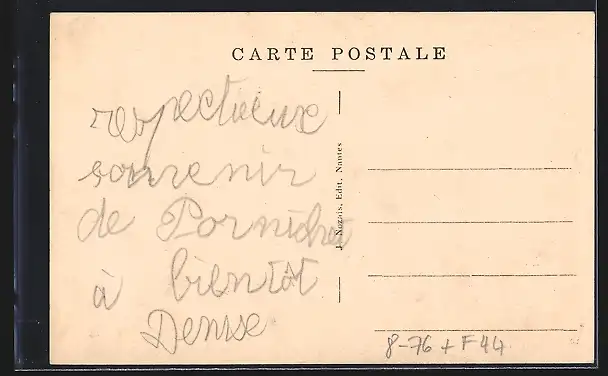 CARTE POSTALE
respectueux
souvenir
de Pornichet
à bientôt
Denise
J. Nozais, Edit. Nantes
8-76 + F44